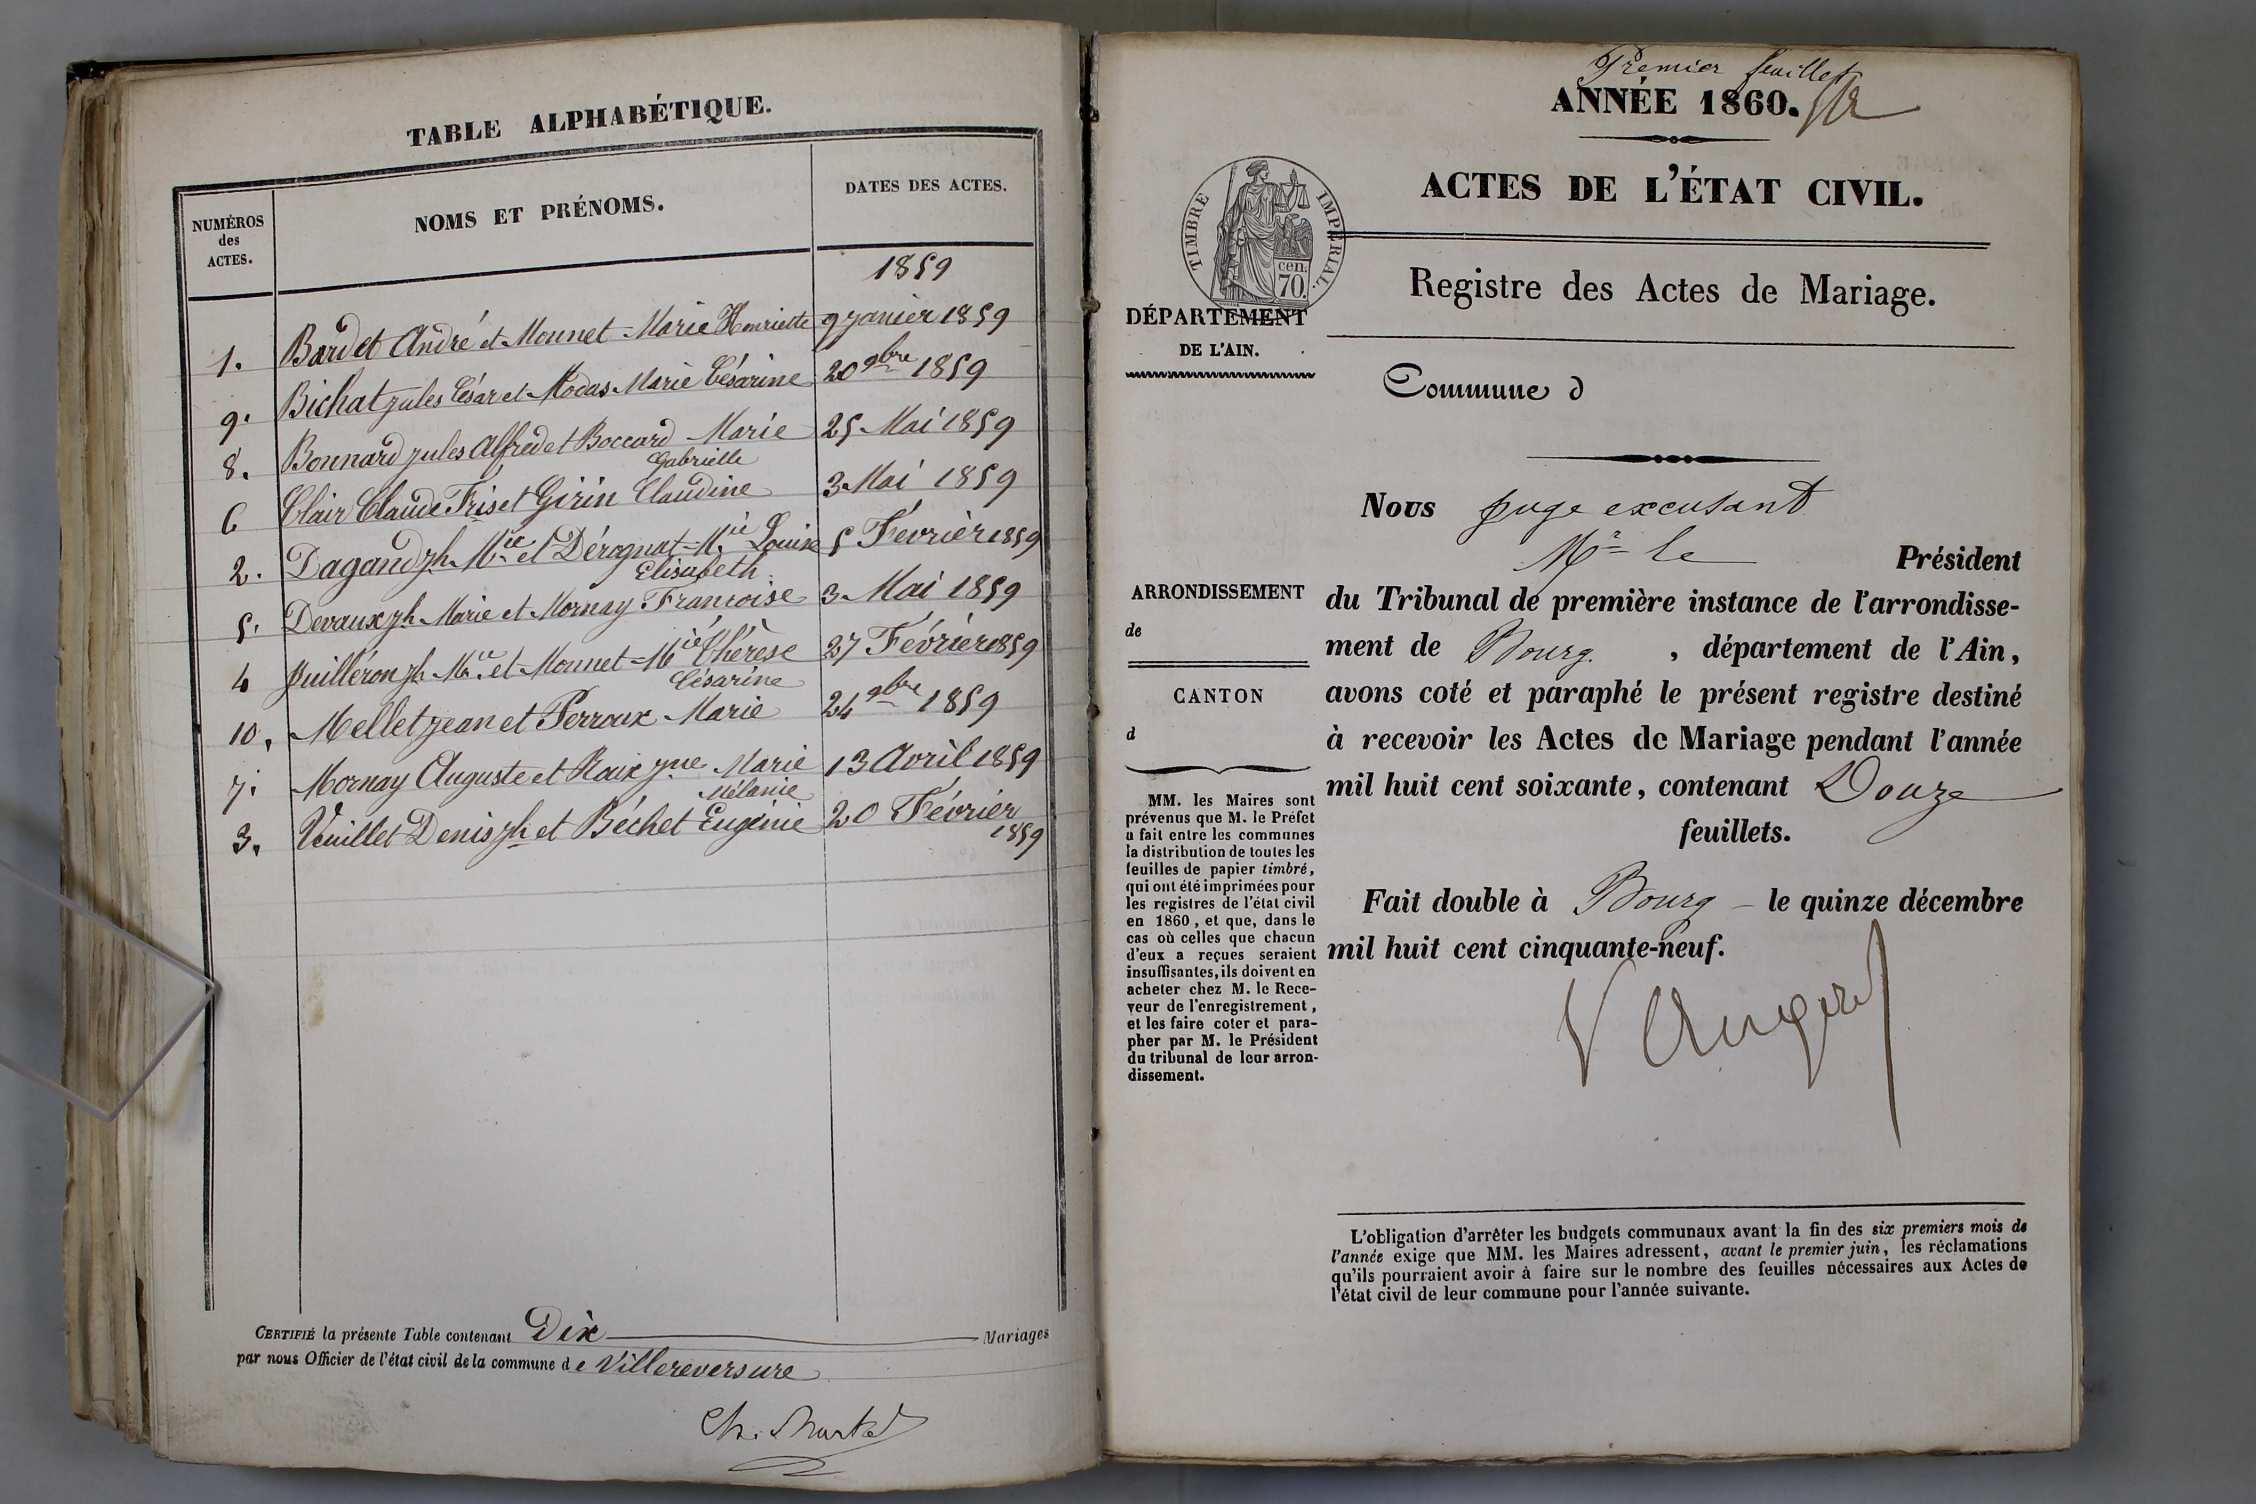 TABLE ALPHABÉTIQUE.
NUMÉROS
des
ACTES.
NOMS ET PRÉNOMS.
DATES DES ACTES.
1859
1. Bardet André et Monnet - Marie Henriette 9 janier 1859
9. Bichat jules César et Modas Marie Césarine 20 9bre 1859
8. Bonnard jules Alfred et Boccard Marie 25 Mai 1859
Gabrielle
6 Clair Claude Fris et Girin Claudine 3 Mai 1859
2. Dagand jh Mie et Dérognat - Mie Louise 5 Février 1859
Elisabeth
5. Devaux jh Marie et Mornay Francoise 3 Mai 1859
4 juilléron jh Mie et Monnet - Mie Thérèse 27 Février 1859
Césarine
10. Mellet jean et Perroux Marie 24 9bre 1859
7. Mornay Auguste et Roux jne Marie 13 Avril 1859
Mélanie
3. Veuillet Denis jh et Béchet Eugénie 20 Février
1859
CERTIFIÉ la présente Table contenant Dix Mariages
par nous Officier de l'état civil de la commune de Villereversure
Premier feuillet
ANNÉE 1860.
ACTES DE L'ÉTAT CIVIL.
TIMBRE IMPÉRIAL.
cen.
70.
Registre des Actes de Mariage.
DÉPARTEMENT
DE L'AIN.
Commune d
Nous juge excusant
Mr le Président
du Tribunal de première instance de l'arrondisse-
ment de Bourg. , département de l'Ain,
avons coté et paraphé le présent registre destiné
à recevoir les Actes de Mariage pendant l'année
mil huit cent soixante, contenant Douze
feuillets.
Fait double à Bourg - le quinze décembre
mil huit cent cinquante-neuf.
ARRONDISSEMENT
de
CANTON
d
MM. les Maires sont
prévenus que M. le Préfet
a fait entre les communes
la distribution de toutes les
feuilles de papier timbré,
qui ont été imprimées pour
les registres de l'état civil
en 1860, et que, dans le
cas où celles que chacun
d'eux a reçues seraient
insuffisantes, ils doivent en
acheter chez M. le Rece-
veur de l'enregistrement,
et les faire coter et para-
pher par M. le Président
du tribunal de leur arron-
dissement.
L'obligation d'arrêter les budgets communaux avant la fin des six premiers mois de
l'année exige que MM. les Maires adressent, avant le premier juin, les réclamations
qu'ils pourraient avoir à faire sur le nombre des feuilles nécessaires aux Actes de
l'état civil de leur commune pour l'année suivante.